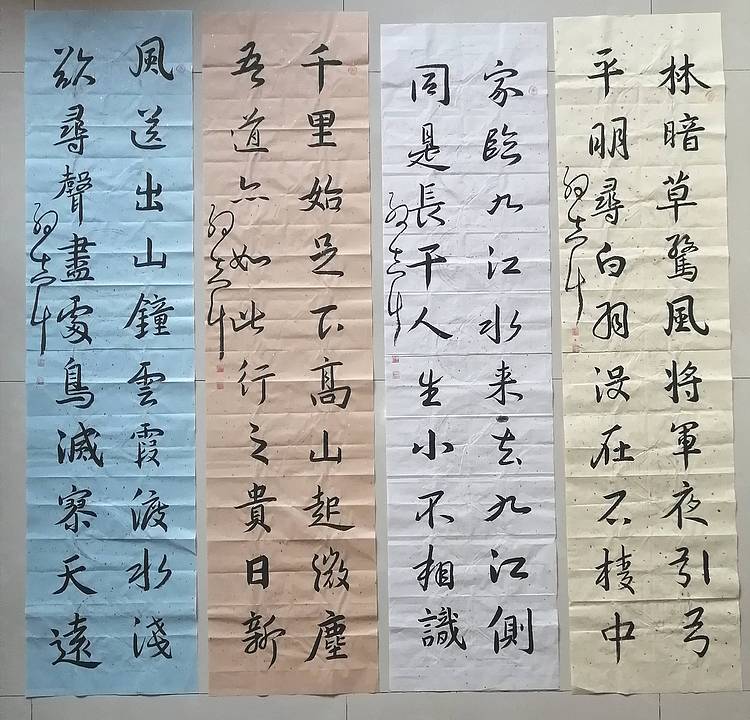 林暗草驚風将軍夜引弓
平明尋白羽没在石棱中
家臨九江水来去九江側
同是長干人生小不相識
千里始足下高山起微塵
吾道亦如此行之貴日新
風送出山鐘雲霞渡水淺
欲尋聲盡處鳥滅寥天遠